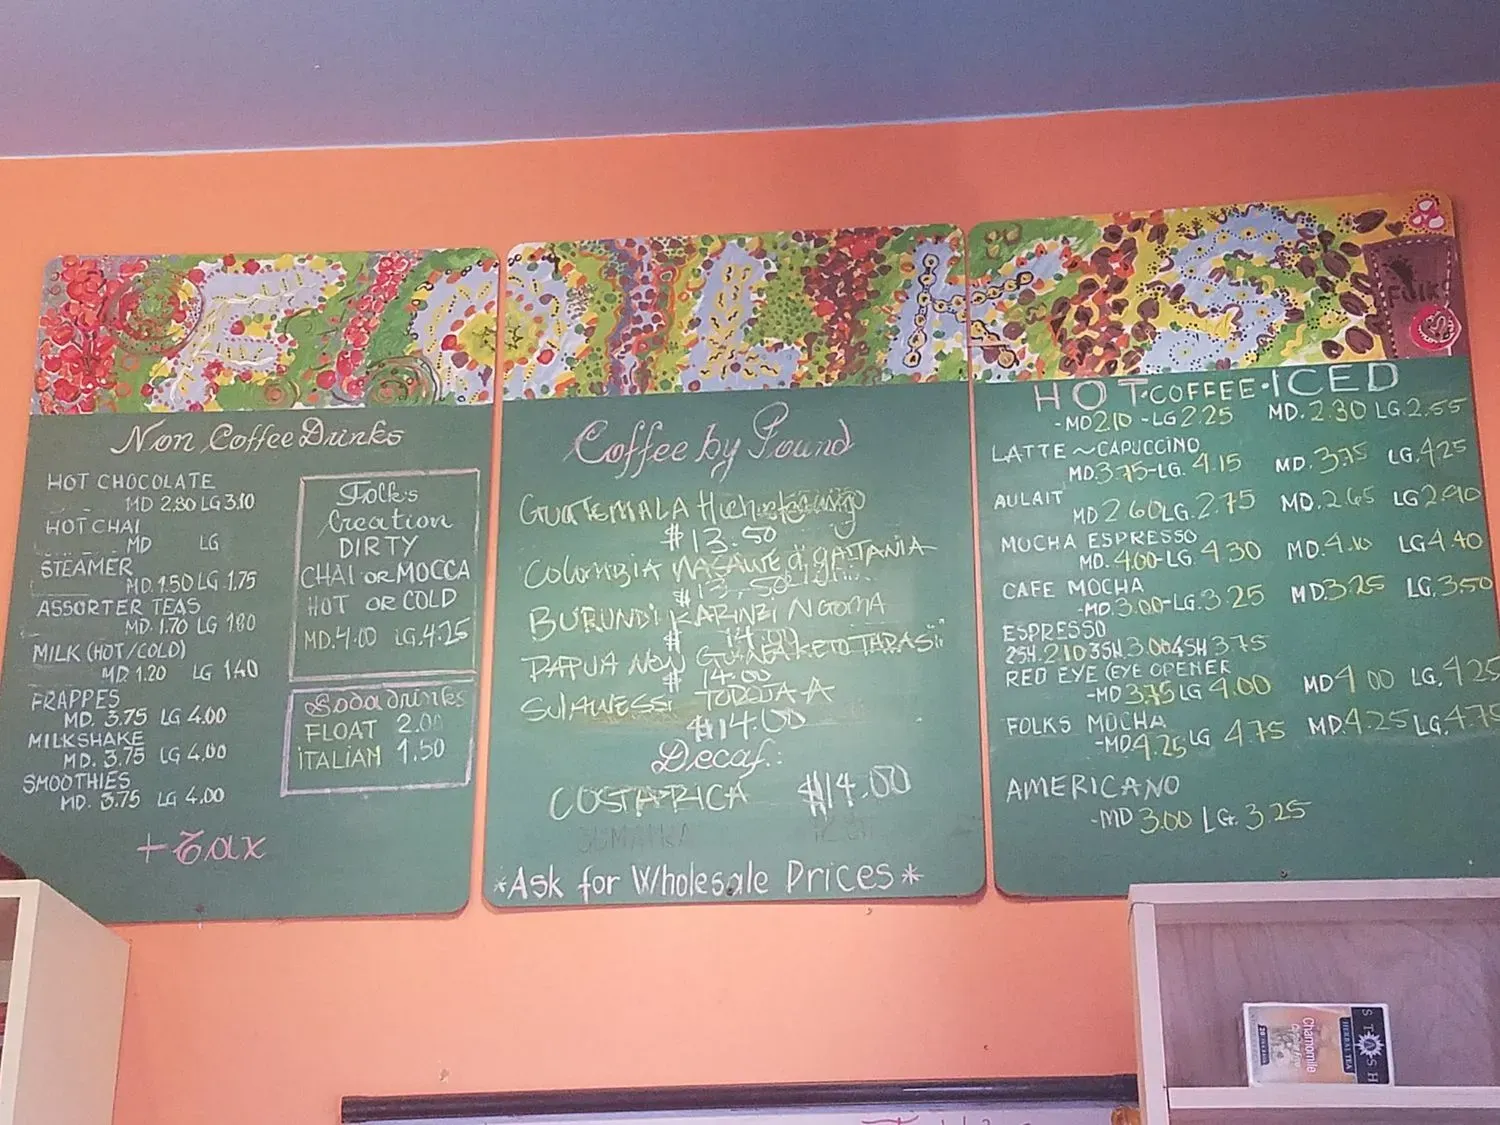 FOLKS
Non Coffee Drinks
HOT CHOCOLATE
MD 2.80 LG 3.10
HOT CHAI
MD LG
STEAMER
MD. 1.50 LG 1.75
ASSORTER TEAS
MD. 1.70 LG 1.80
MILK (HOT/COLD)
MD 1.20 LG 1.40
FRAPPES
MD. 3.75 LG 4.00
MILKSHAKE
MD. 3.75 LG 4.00
SMOOTHIES
MD. 3.75 LG 4.00
+Tax
Folks
Creation
DIRTY
CHAI OR MOCCA
HOT OR COLD
MD. 4.00 LG. 4.25
Soda drinks
FLOAT 2.00
ITALIAN 1.50
Coffee by Pound
GUATEMALA
$13.50
COLOMBIA
$13.50
BURUNDI KARINZI NGOMA
$14.00
PAPUA NEW
$14.00
SULAWESSI TORAJA A
$14.00
Decaf:
COSTA RICA $14.00
*Ask for Wholesale Prices*
FOLKS
HOT·COFFEE·ICED
-MD 2.10 -LG 2.25 MD. 2.30 LG. 2.55
LATTE ~ CAPUCCINO
MD. 3.75-LG. 4.15 MD. 3.75 LG. 4.25
AULAIT
MD 2.60 LG. 2.75 MD. 2.65 LG 2.90
MOCHA ESPRESSO
MD. 4.00-LG. 4.30 MD. 4.10 LG 4.40
CAFE MOCHA
-MD. 3.00-LG. 3.25 MD 3.25 LG. 3.50
ESPRESSO
2SH. 2.10 3SH 3.00 4SH 3.75
RED EYE (EYE OPENER
-MD 3.75 LG 4.00 MD 4.00 LG. 4.25
FOLKS MOCHA
-MD 4.25 LG 4.75 MD. 4.25 LG. 4.75
AMERICANO
-MD 3.00 LG. 3.25
STASH
HERBAL TEA
Chamomile